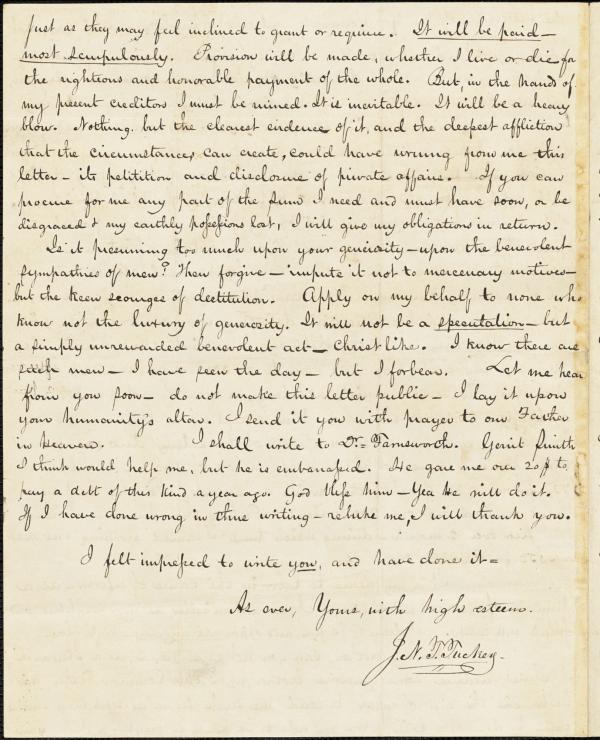 just as they may feel inclined to grant or require. It will be paid—
most scrupulously. Provision will be made, whether I live or die for
the righteous and honorable payment of the whole. But, in the hands of
my present creditors I must be ruined. It is inevitable. It will be a heavy
blow. Nothing but the clearest evidence of it, and the deepest affliction
that the circumstances can create, could have wrung from me this
letter — its petition and disclosure of private affairs. If you can
procure for me any part of the sum I need and must have soon, or be
disgraced & my earthly possessions lost, I will give my obligations in return.
Is it presuming too much upon your generosity — upon the benevolent
sympathies of men? Then forgive — impute it not to mercenary motives—
but the keen scourges of destitution. Apply on my behalf to none who
know not the luxury of generosity. It will not be a speculation — but
a simply unrewarded benevolent act — Christ like. I know there are
such men — I have seen the day — but I forbear. Let me hear
from you soon — do not make this letter public — I lay it upon
your humanity's altar. I send it you with prayer to our Father
in Heaven. I shall write to Dr. Farnsworth. Gerrit Smith
I think would help me, but he is embarrassed. He gave me over 20 $ to
pay a debt of this kind a year ago. God bless him — Yea He will do it.
If I have done wrong in thus writing — rebuke me, I will thank you.
I felt impressed to write you, and have done it =
As ever, Yours, with high esteem.
J. N. T. Tucker.